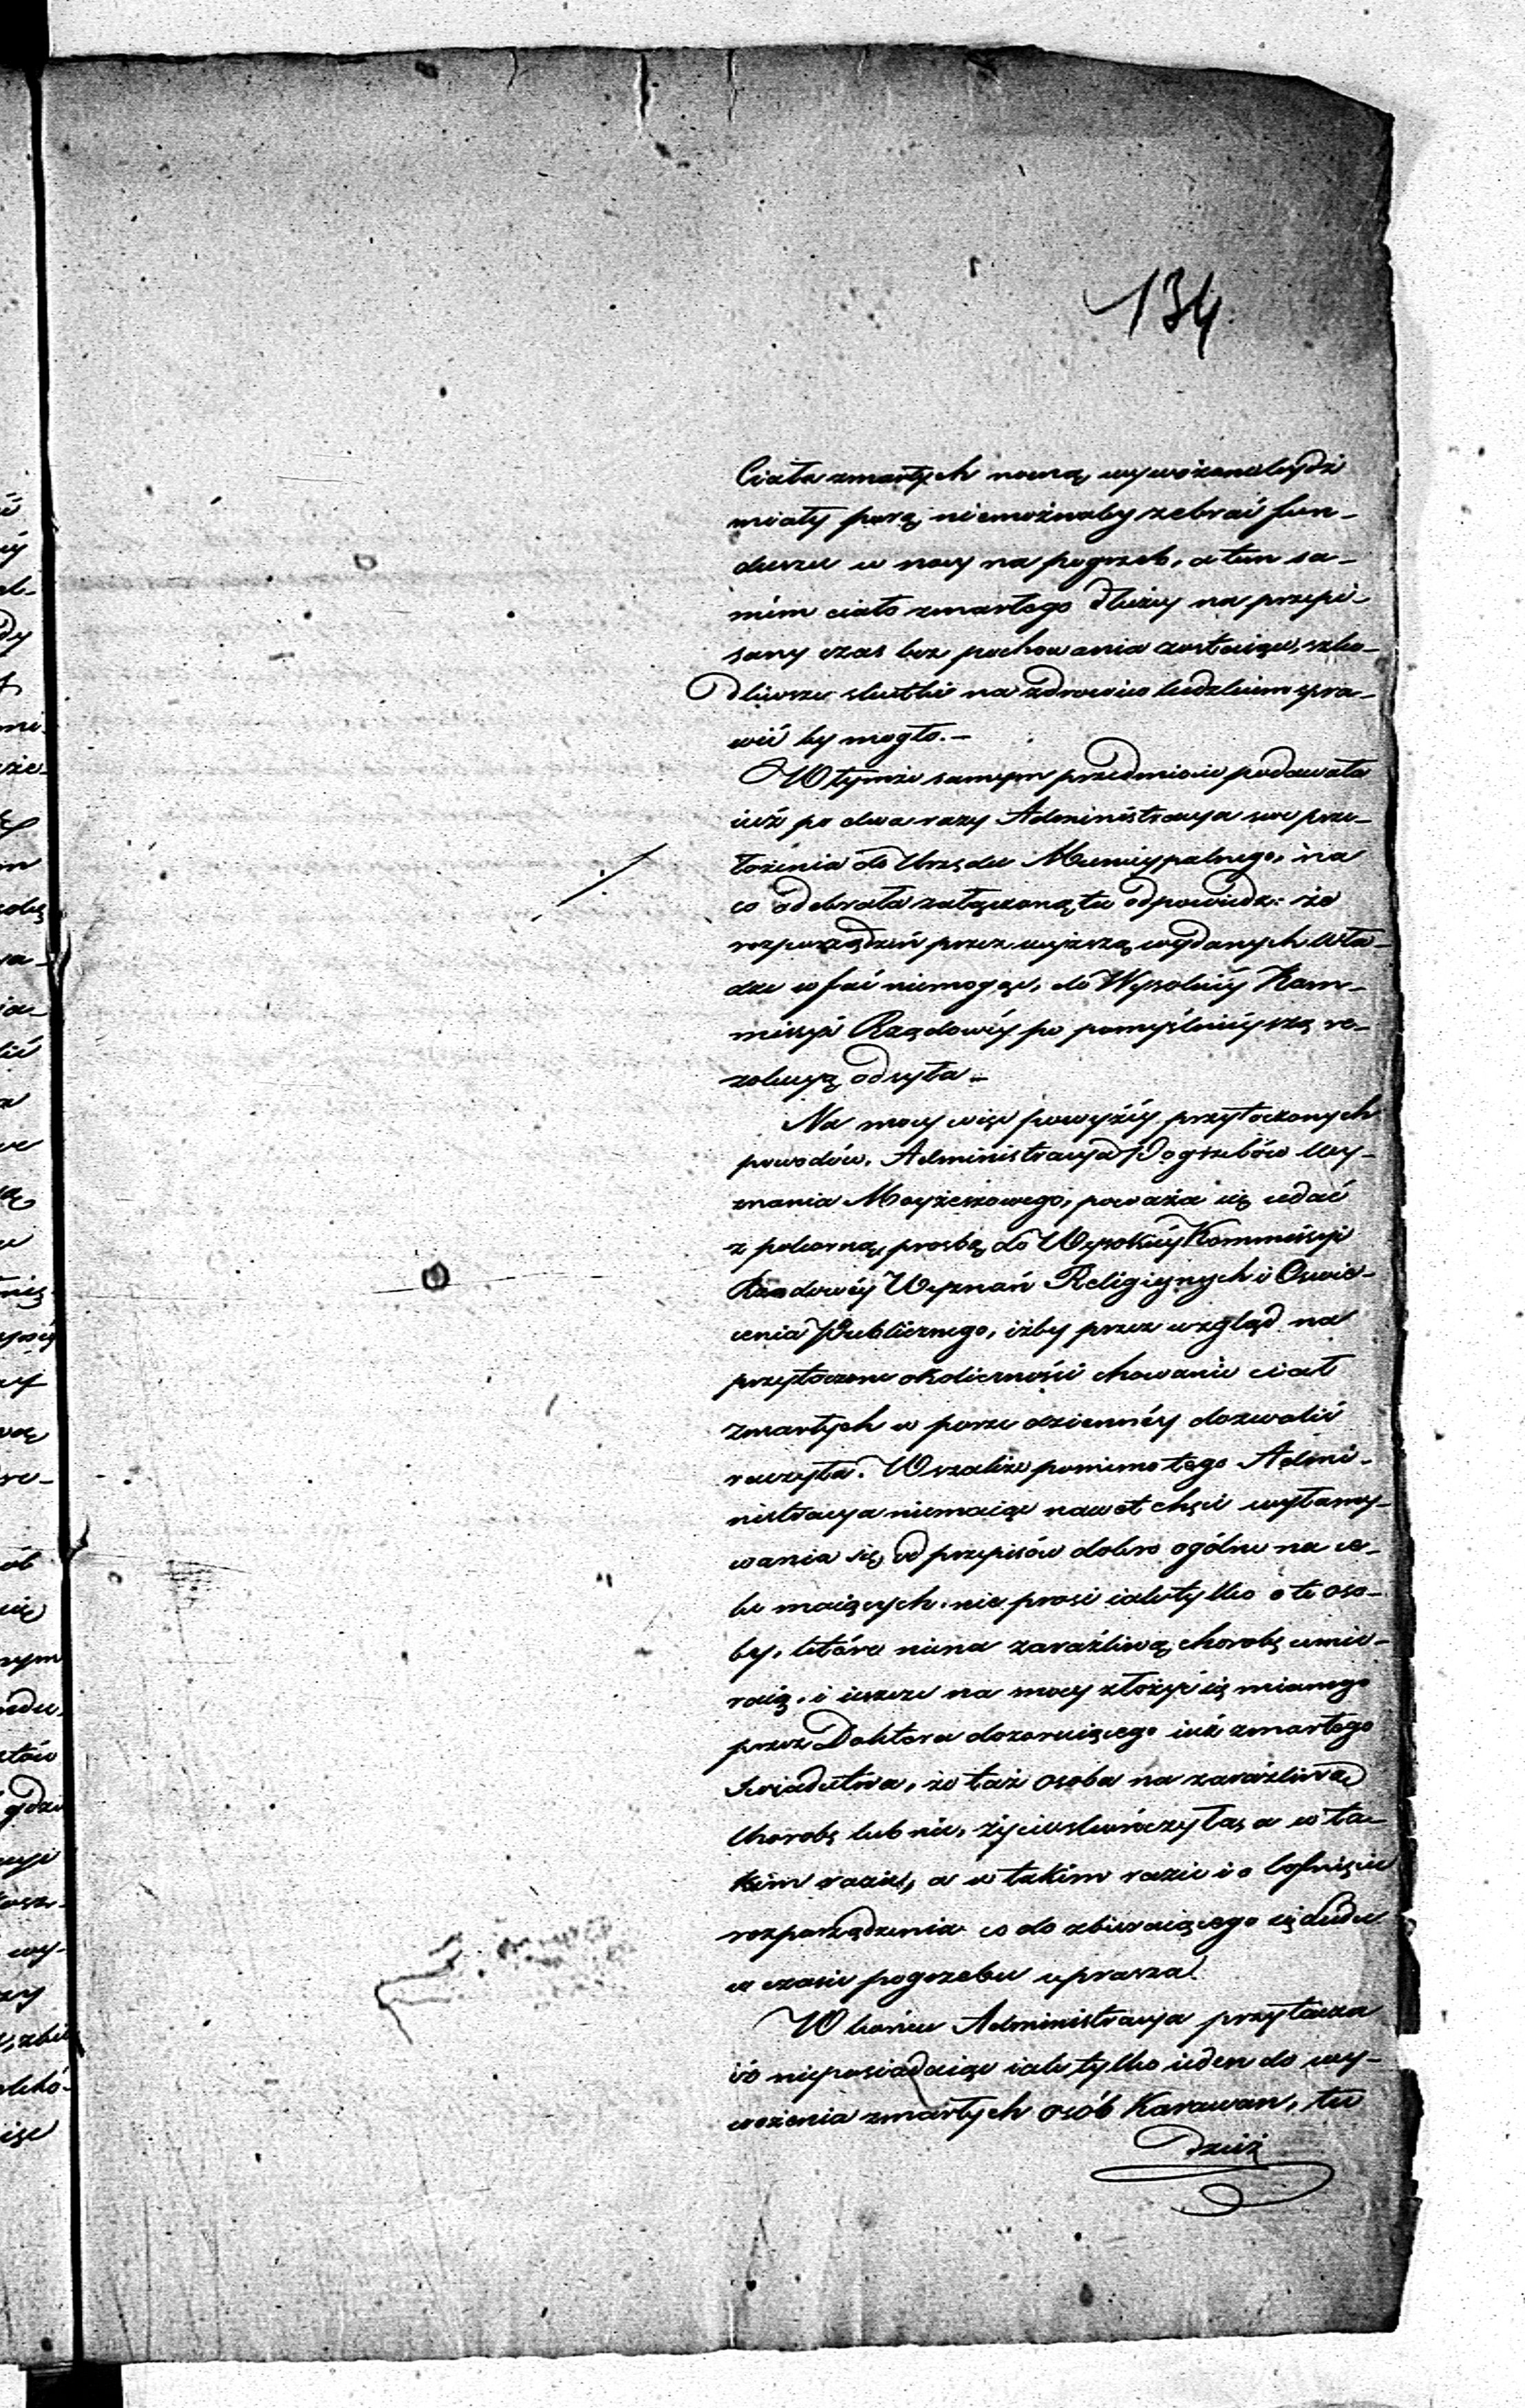 134
Ciała zmarłych nocną wywożone bydź
miały porą, niemożnaby zebrać fun-
duszu w nocy na pogrzeb, a tem sa-
mém ciało zmarłego dłużey na przepi-
sany czas bez pochowania zostaiąc, szko-
dliwsze skutki na zdrowiu ludzkiem spra-
wić by mogło.-
W tymże samym przedmiocie podawała
iuż po dwa razy Administracya swe prze-
łożenia do Urzędu Municypalnego, na
co odebrała załączoną tu odpowiedz: że
rozporządzeń przez wyższą wydanych wła-
dzę cofać niemogąc, do Wysokiéy Kom-
missyi Rządowéy po pomyślnieyszą re-
zolucyą odsyła.-
Na mocy więc powyżéy przytoczonych
powodów, Administracya Pogrzebów Wy-
znania Moyżeszowego, poważa się udać
z pokorną prosbą do Wysokiéy Kommissyi
Rządowéy Wyznań Religiynych i Oswie-
cenia Publicznego, iżby przez wzgląd na
przytoczone okoliczności chowanie ciał
zmarłych w porze dziennéy dozwolić
raczyła. Wszakże pomimo tego Admi-
nistracya niemaiąc nawet chęci wyłamy-
wania się od przepisów dobro ogólne na ce-
lu maiących, nie prosi iak tylko o te oso-
by, które nie na zaraźliwą chorobę umie-
raią, i ieszcze na mocy złożyć się mianego
przez Doktora dozoruiącego iuż zmarłego
świadectwa, że taż osoba na zaraźliwą
chorobę lub nie, życie skończyła, a w ta-
kim razie, a w takim razie i o cofnięcie
rozporządzenia co do zbieraiącego się ludu
w czasie pogrzebu uprasza.
W końcu Administracya przytacza
iż nieposiadaiąc iak tylko ieden do wy-
wożenia zmarłych osób Karawan, tu
dzież